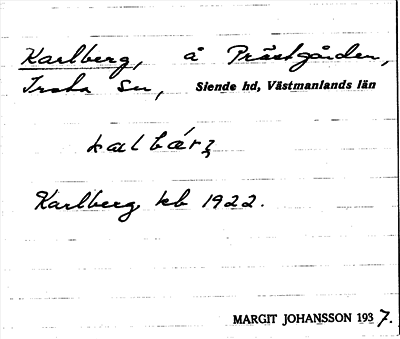 Karlberg, å Prästgården,
Irsta sn, Siende hd, Västmanlands län
kalbárʒ
Karlberg kb 1922.
MARGIT JOHANSSON 1937.